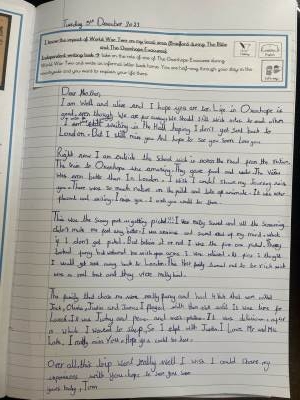 Tuesday December 2021
I know the impact of World War Two on my local area (Bradford during The Blitz
and The Oxenhope Evacuees)
Independent writing task → take on the role of one of The Oxenhope Evacuees during
World War Two and write an informal letter back home. You are half way through your stay in the
countryside and you want to explain your life there.
Dear Mother,
I am Well and alive and I hope you are to. Life in Oxenhope is
good even though We are far away We should still write letter to each other
I am waiting in The Hall hoping I don't get sent back to
London. But I still miss you And hope to see you soon Love you
Right now I am outside the School wich is across the road from the station.
The train to Oxenhope was amazing. They gave food and water The Water
was even better than In London. I wish I could share my Journey with
you. There were so much nature on the and lots of animals. It was
placed and I miss you. I wish you could be there.
This was the scary part on getting picked!!! I was really Scared and all the Screaming
didn't make me feel any better. I was anxious and scared out of my mind. What
if I don't get picked. But believe it or not I was the five one picked.
family that welcomed me with open arms. I was relived to be pick I thought
I would get sent away back to London. The first family turned out to be rich and
was so cool and they were really kind.
The family that chose me were really funny and had 4 kids that were called
Jack, and I played with them was cool. It was time for
It was Turkey and peas and mash potatoes. It was delicious. after
is which I wanted to sleep. So I slept with Justin. I Love Mr and Mrs
I really miss You. Hope you could be here.
Over all this trip went really well I wish I could share my
experiences with you hope to see you soon
yours truly,